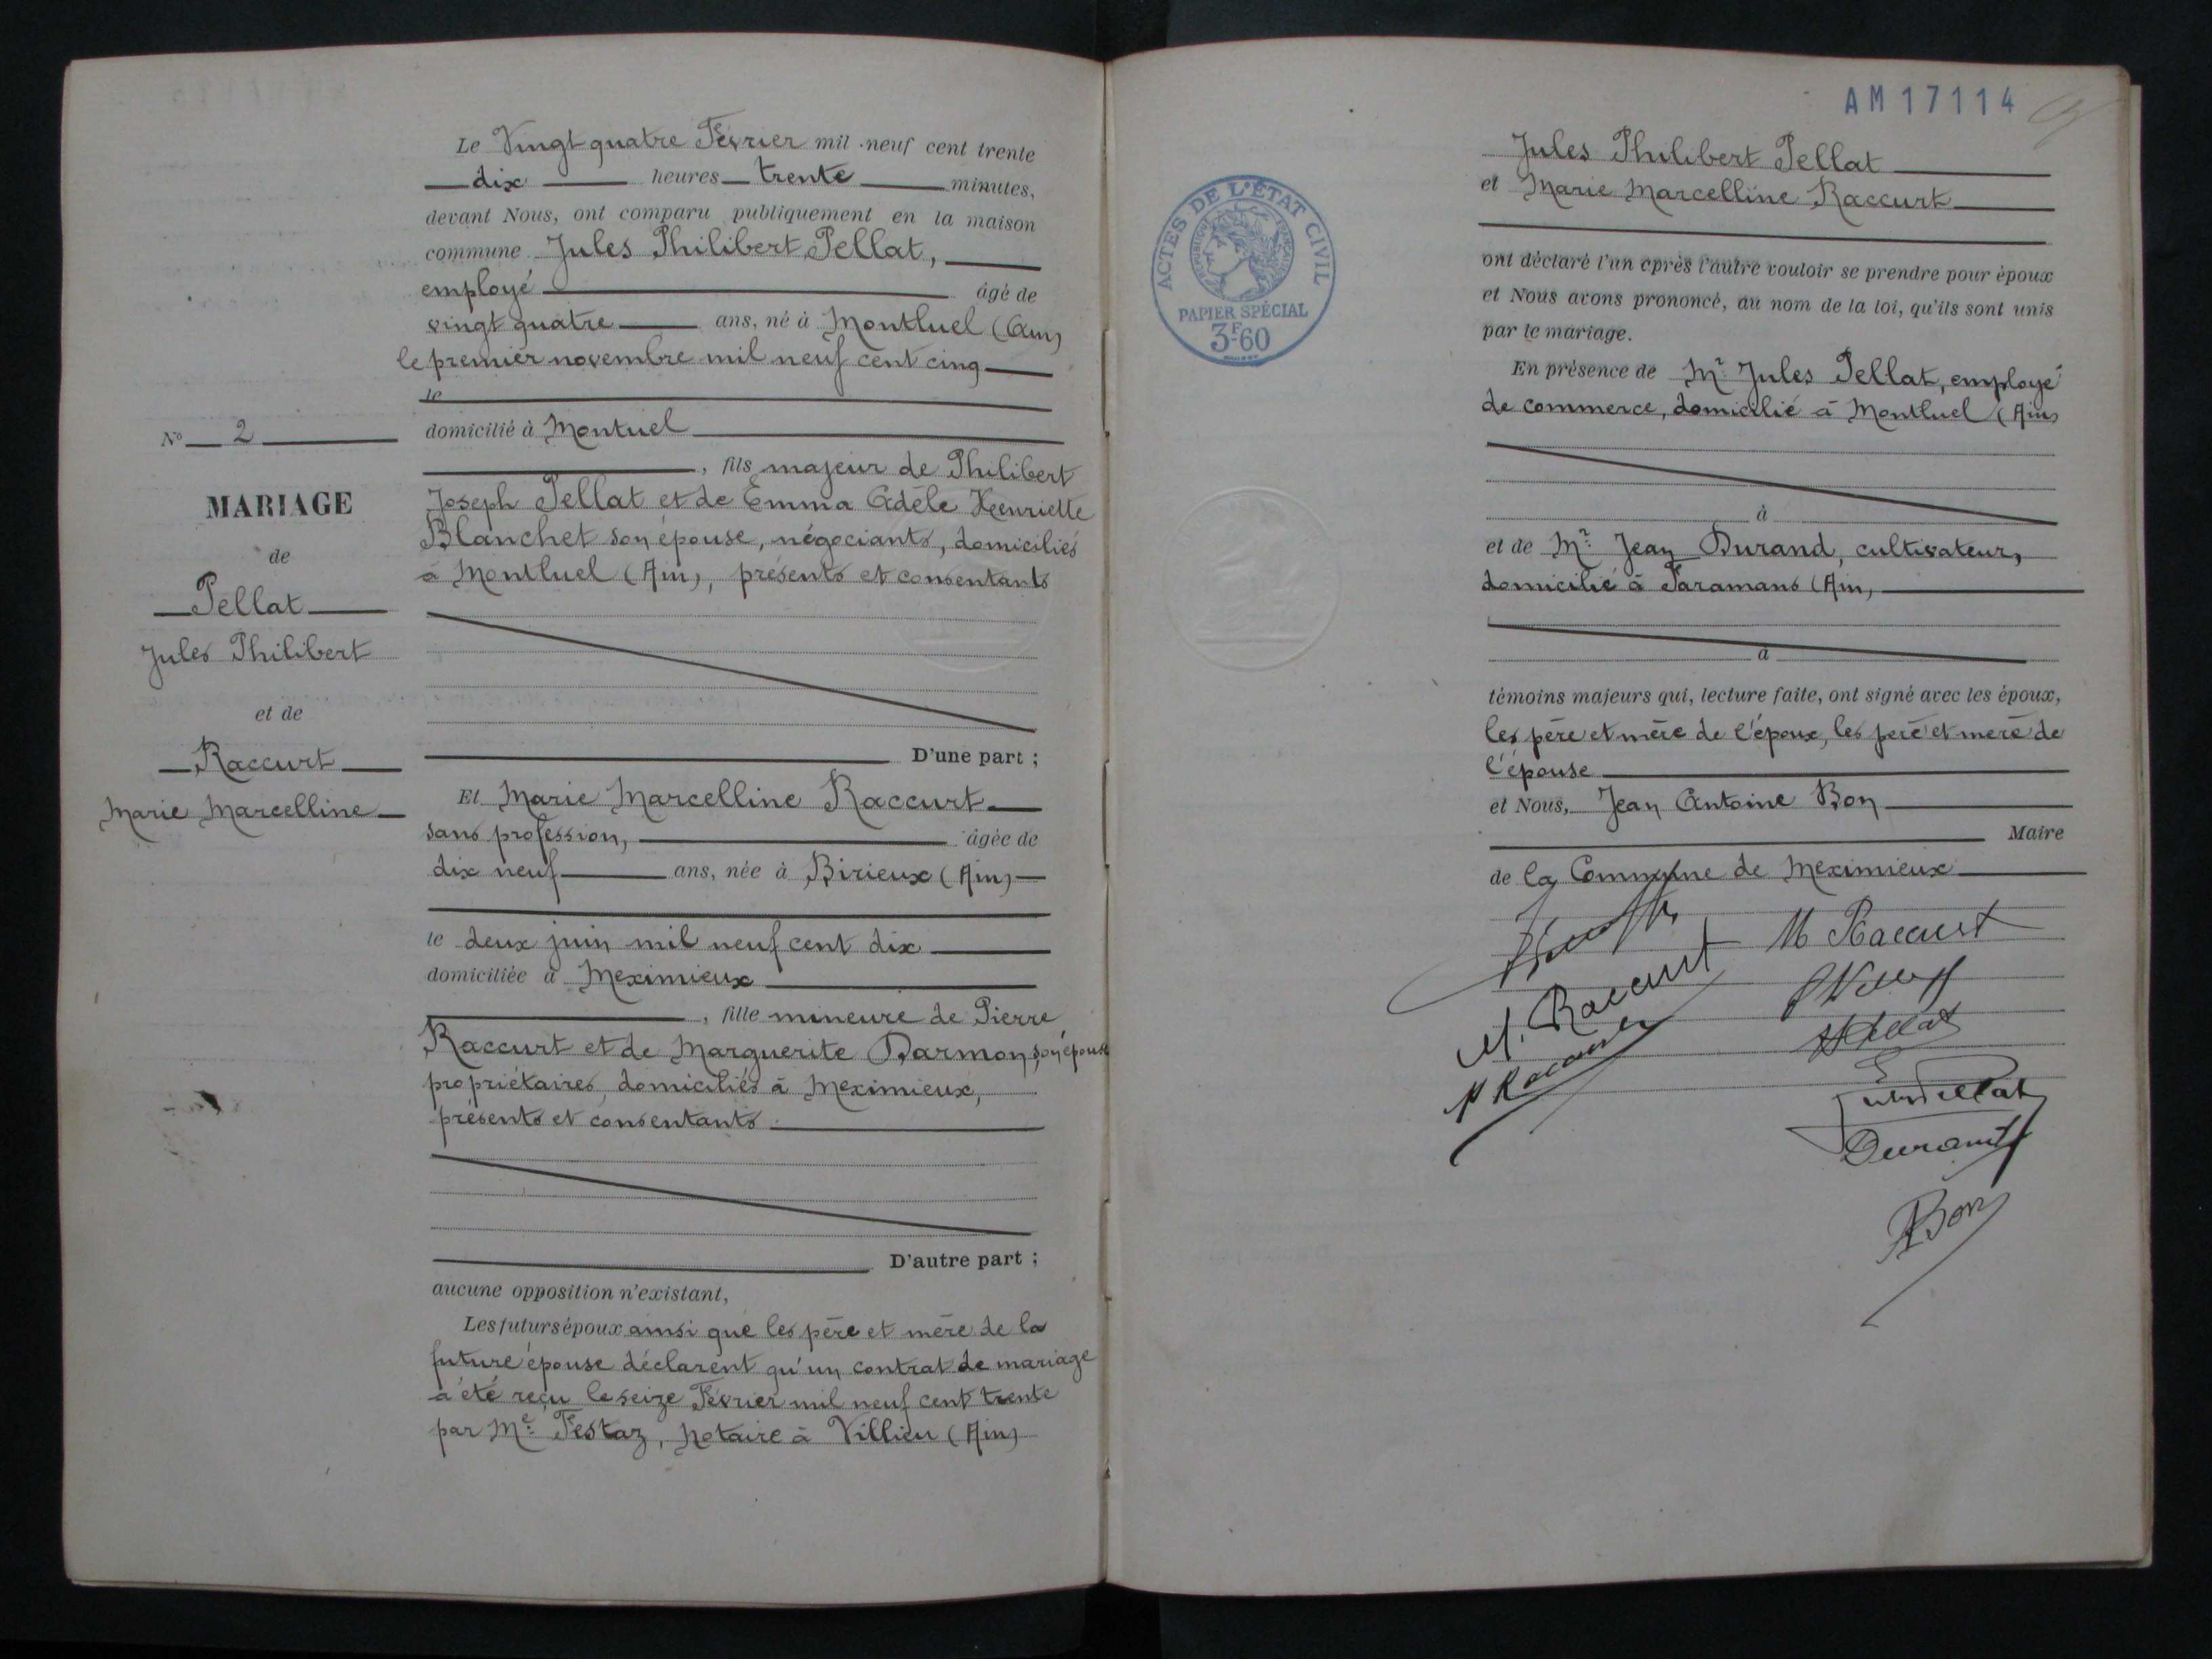 Le Vingt quatre Février mil neuf cent trente
dix heures trente minutes,
devant Nous, ont comparu publiquement en la maison
commune Jules Philibert Pellat,
employé âgé de
vingt quatre ans, né à Montluel (Ain)
le premier novembre mil neuf cent cinq
le
domicilié à Montuel
, fils majeur de Philibert
Joseph Pellat et de Emma Adèle Henriette
Blanchet son épouse, négociants, domiciliés
à Montluel (Ain), présents et consentants
D'une part ;
Et Marie Marcelline Raccurt
sans profession, âgée de
dix neuf ans, née à Birieux (Ain)
le deux juin mil neuf cent dix
domiciliée à Meximieux
, fille mineure de Pierre
Raccurt et de Marguerite Darmon, son épouse
propriétaires, domiciliés à Meximieux,
présents et consentants
D'autre part ;
aucune opposition n'existant,
Les futurs époux ainsi que les père et mère de la
future épouse déclarent qu'un contrat de mariage
a été reçu le seize Février mil neuf cent trente
par Me Festaz, notaire à Villieu (Ain)
No 2
MARIAGE
de
Pellat
Jules Philibert
et de
Raccurt
Marie Marcelline
AM17114
ACTES DE L'ÉTAT CIVIL
PAPIER SPÉCIAL
3F60
Jules Philibert Pellat
et Marie Marcelline Raccurt
ont déclaré l'un après l'autre vouloir se prendre pour époux
et Nous avons prononcé, au nom de la loi, qu'ils sont unis
par le mariage.
En présence de Mr Jules Pellat, employé
de commerce, domicilié à Montluel (Ain)
à
et de Mr Jean Durand, cultivateur,
domicilié à Faramans (Ain)
à
témoins majeurs qui, lecture faite, ont signé avec les époux,
les père et mère de l'époux, les père et mère de
l'épouse
et Nous, Jean Antoine Bon
Maire
de la Commune de Meximieux
M Raccurt
M. Raccurt
Pellat
Durand
Bon